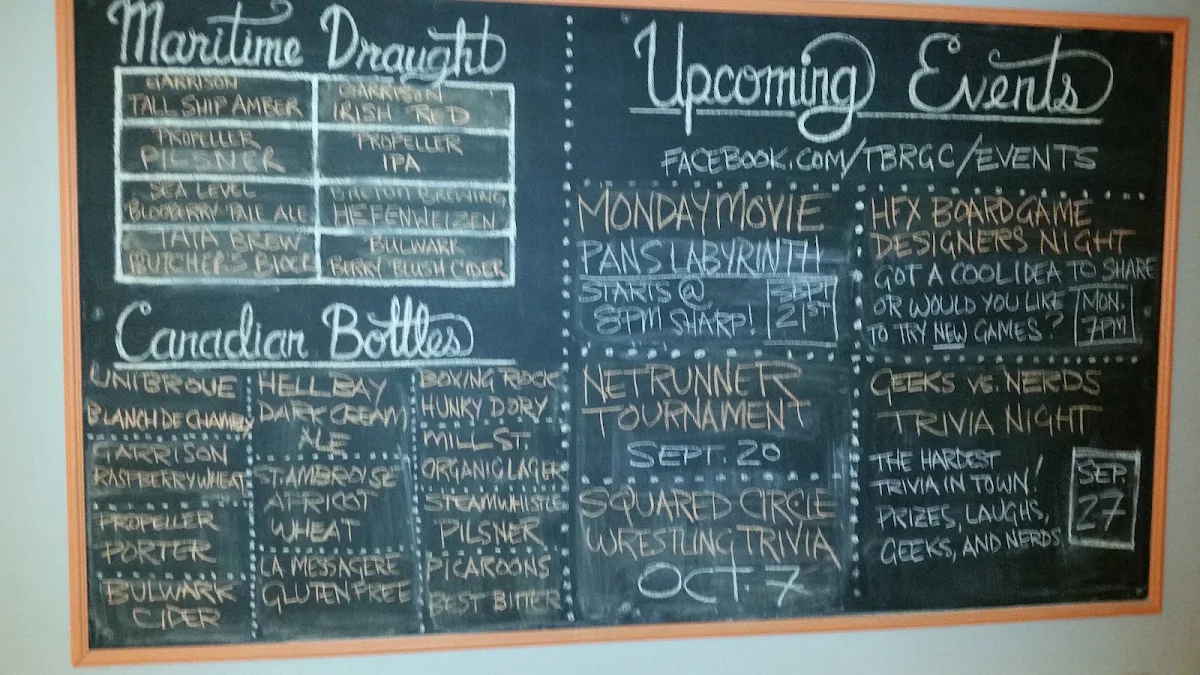 Maritime Draught
GARRISON
TALL SHIP AMBER
GARRISON
IRISH RED
PROPELLER
PILSNER
PROPELLER
IPA
SEA LEVEL
BLOOBERRY PALE ALE
BRETON BREWING
HEFENWEIZEN
TATA BREW
BUTCHERS BLOCK
BULWARK
BURRY BLUSH CIDER
Canadian Bottles
UNIBROUE
BLANCH DE CHAMBLY
GARRISON
RASPBERRY WHEAT
PROPELLER
PORTER
BULWARK
CIDER
HELL BAY
DARK CREAM
ALE
ST. AMBROISE
APRICOT
WHEAT
LA MESSAGERE
GLUTEN FREE
BOXING ROCK
HUNKY DORY
MILL ST.
ORGANIC LAGER
STEAMWHISTLE
PILSNER
PICAROONS
BEST BITTER
Upcoming Events
FACEBOOK.COM/TBRGC/EVENTS
MONDAY MOVIE
PANS LABYRINTH
STARTS @
8PM SHARP!
SEPT
21ST
NETRUNNER
TOURNAMENT
SEPT. 20
SQUARED CIRCLE
WRESTLING TRIVIA
OCT. 7
HFX BOARDGAME
DESIGNERS NIGHT
GOT A COOL IDEA TO SHARE
OR WOULD YOU LIKE
TO TRY NEW GAMES?
MON.
7PM
GEEKS VS. NERDS
TRIVIA NIGHT
THE HARDEST
TRIVIA IN TOWN!
PRIZES, LAUGHS,
GEEKS, AND NERDS
SEP.
27